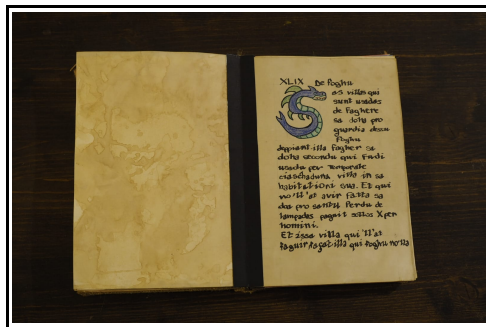 XLIX De Foghu
Sas villas qui
sunt usadas
de faghere
sa doha pro
guardia dessu
foghu
deppiant illa fagher sa
doha secundu qui fudi
usadu per temporale
ciaschaduna villa in sa
habitationi sua. Et qui
no ll'at avir fatta sa
doa pro santu Perdu de
lampadas paguit sollos X per
homini.
Et issa villa qui ll'at
faguir façat illa qui foghu nolla